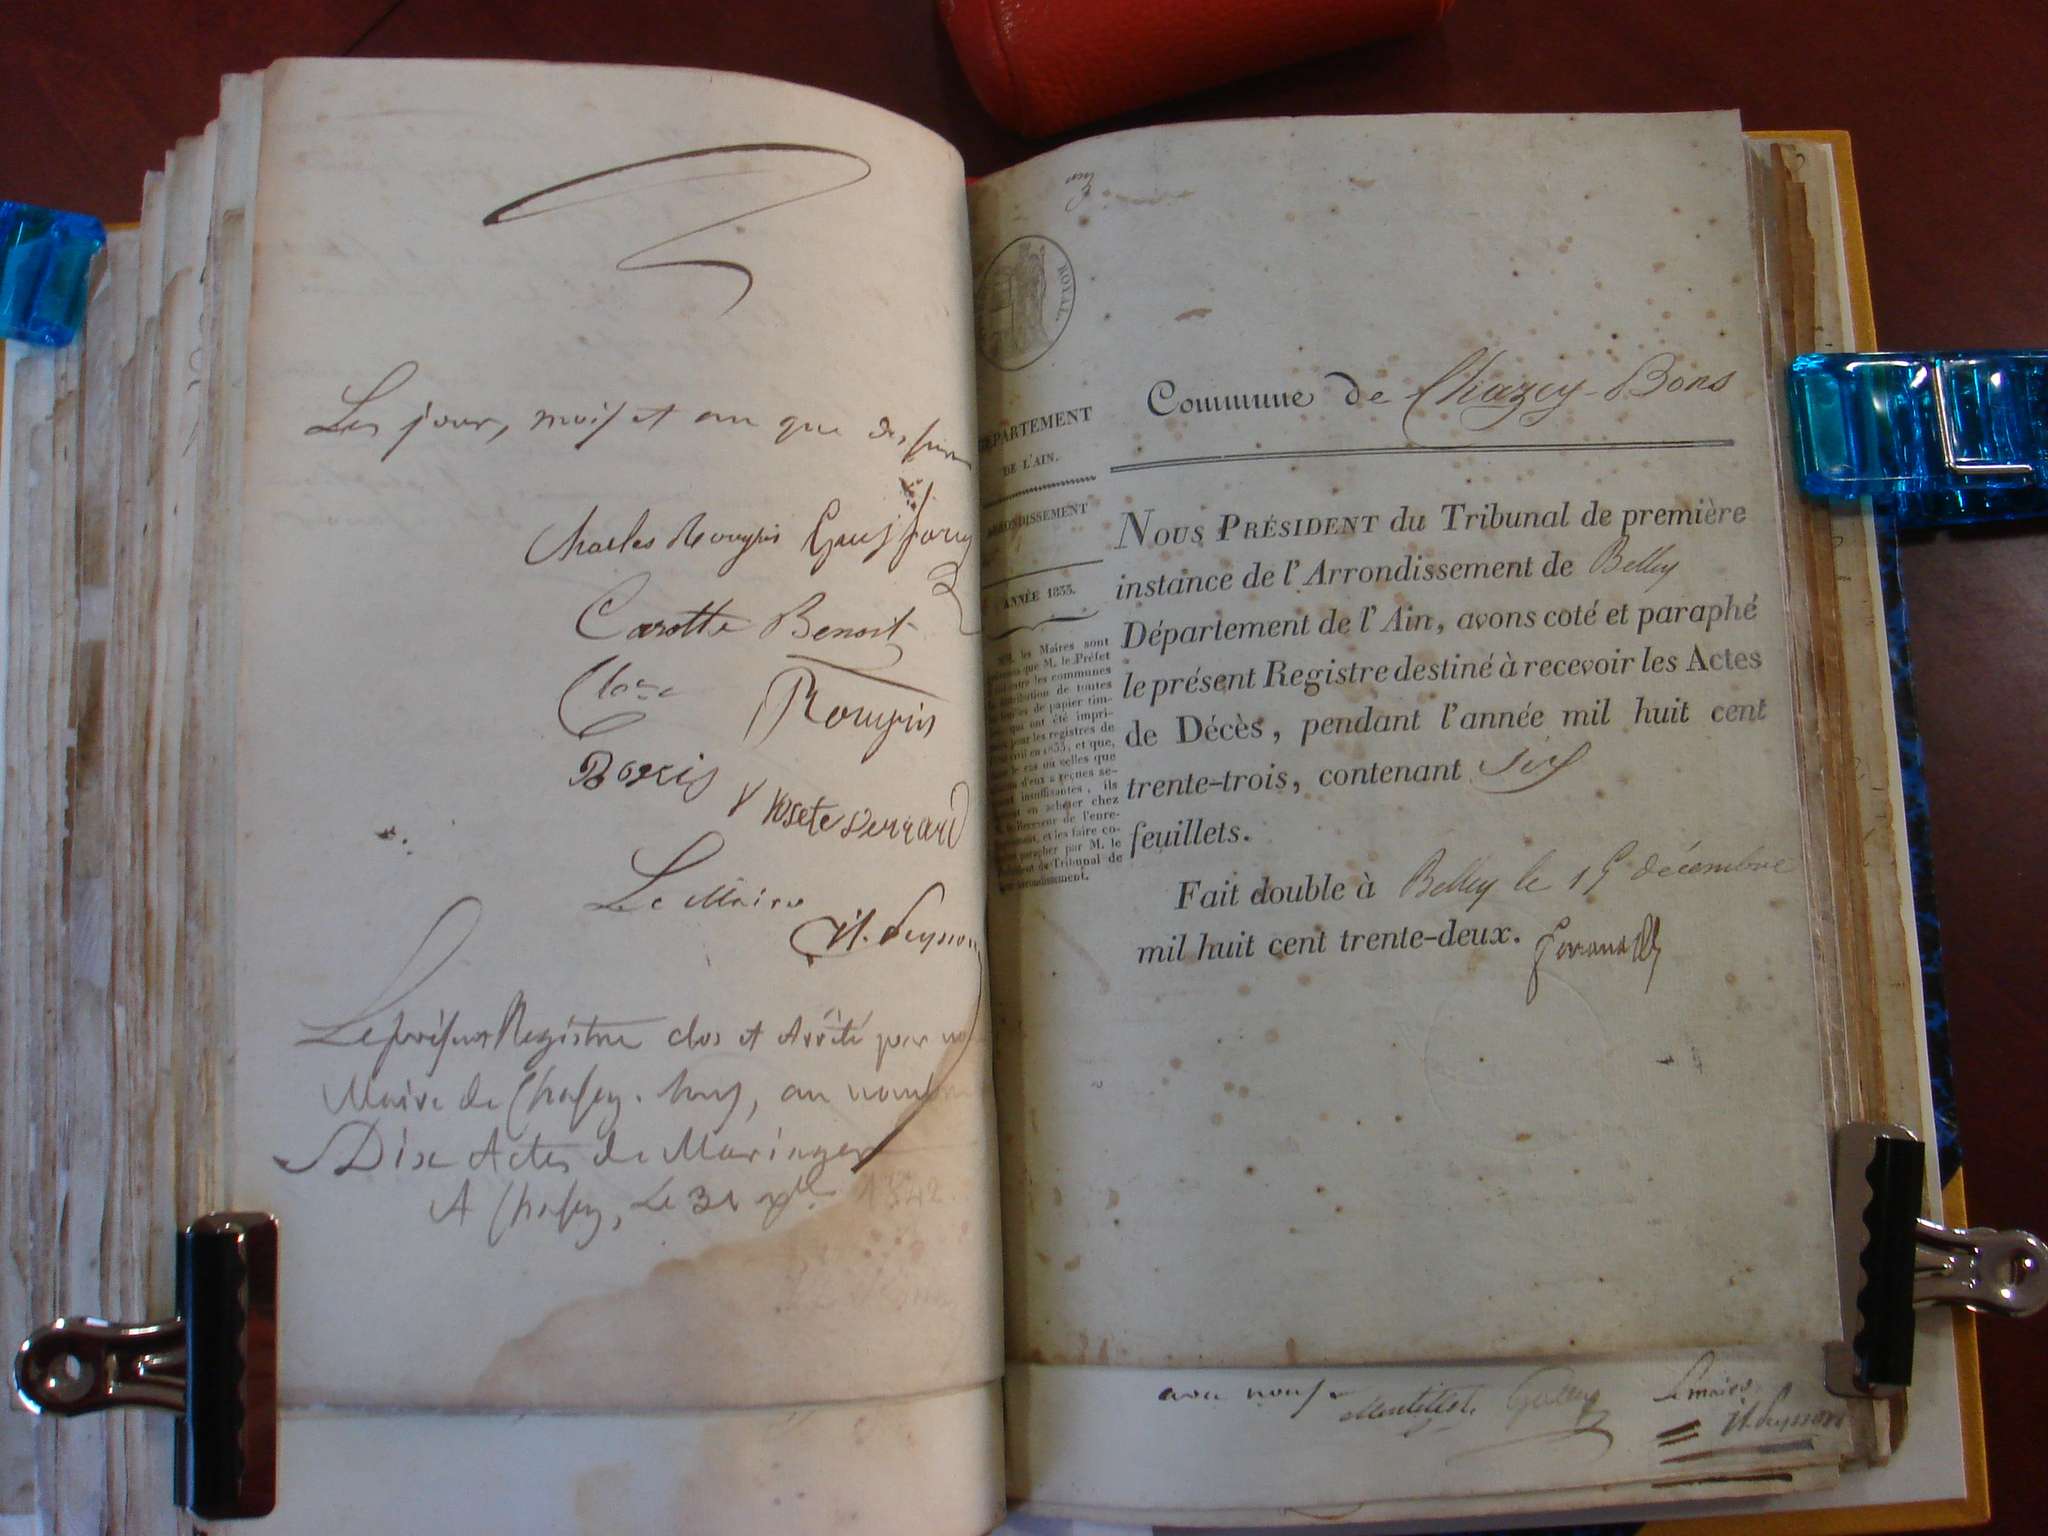 Les jour, mois et an que dessus
Charles Rougin
Carotte Benoit
Claire Rougin
Borcis
Le Maire
Le présent Registre clos et Arrêté par nous
Maire de Chasey-bons, au nombre
Dix Actes de Mariages
A Chasey, Le 31 xbre
ROYAL.
DÉPARTEMENT
DE L'AIN.
ARRONDISSEMENT
ANNÉE 1833.
MM. les Maires sont
que M. le Préfet
entre les communes
distribution de toutes
de papier tim-
qui ont été impri-
pour les registres de
civil en 1833, et que,
le cas où celles que
d'eux a reçues se-
insuffisantes, ils
en acheter chez
le Receveur de l'enre-
et les faire co-
parapher par M. le
Président du Tribunal de
arrondissement.
Commune de Chazey-Bons
NOUS PRÉSIDENT du Tribunal de première
instance de l'Arrondissement de Belley
Département de l'Ain, avons coté et paraphé
le présent Registre destiné à recevoir les Actes
de Décès, pendant l'année mil huit cent
trente-trois, contenant Six
feuillets.
Fait double à Belley le 15 décembre
mil huit cent trente-deux.
avec nous.
Le maire